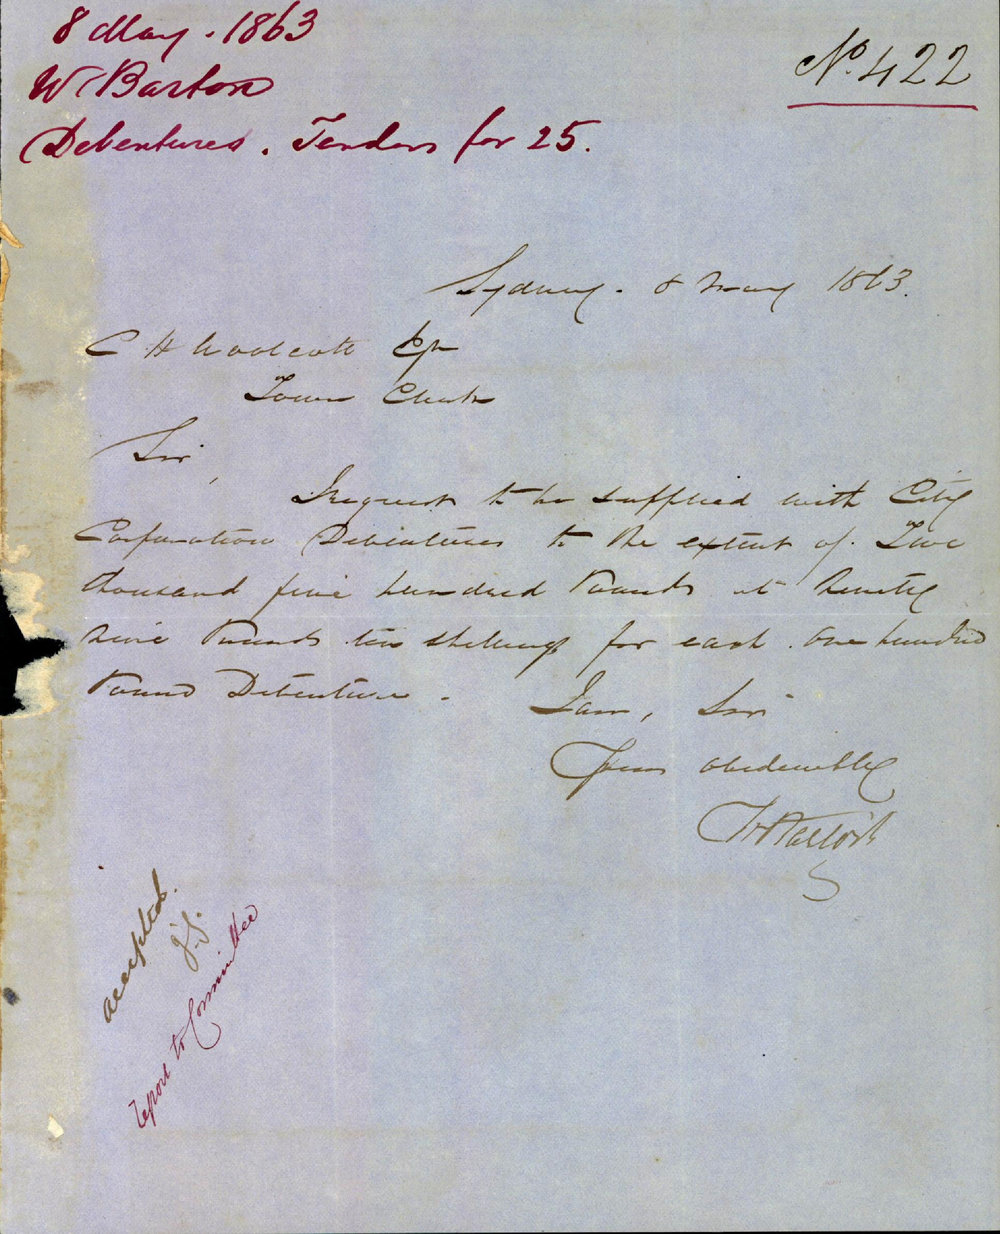 8 May. 1863
W Barton
Debentures. Tenders for 25.
No. 422
Sydney. 8 May 1863.
C H Woolcott Esqr
Town Clerk
Sir,
I request to be supplied with City
Corporation Debentures to the extent of Two
thousand five hundred Pounds at Ninety
nine Pounds ten shillings for each One hundred
Pound Debenture.
I am, Sir
Your obediently
W Barton
accepted.
J.S.
report to Committee